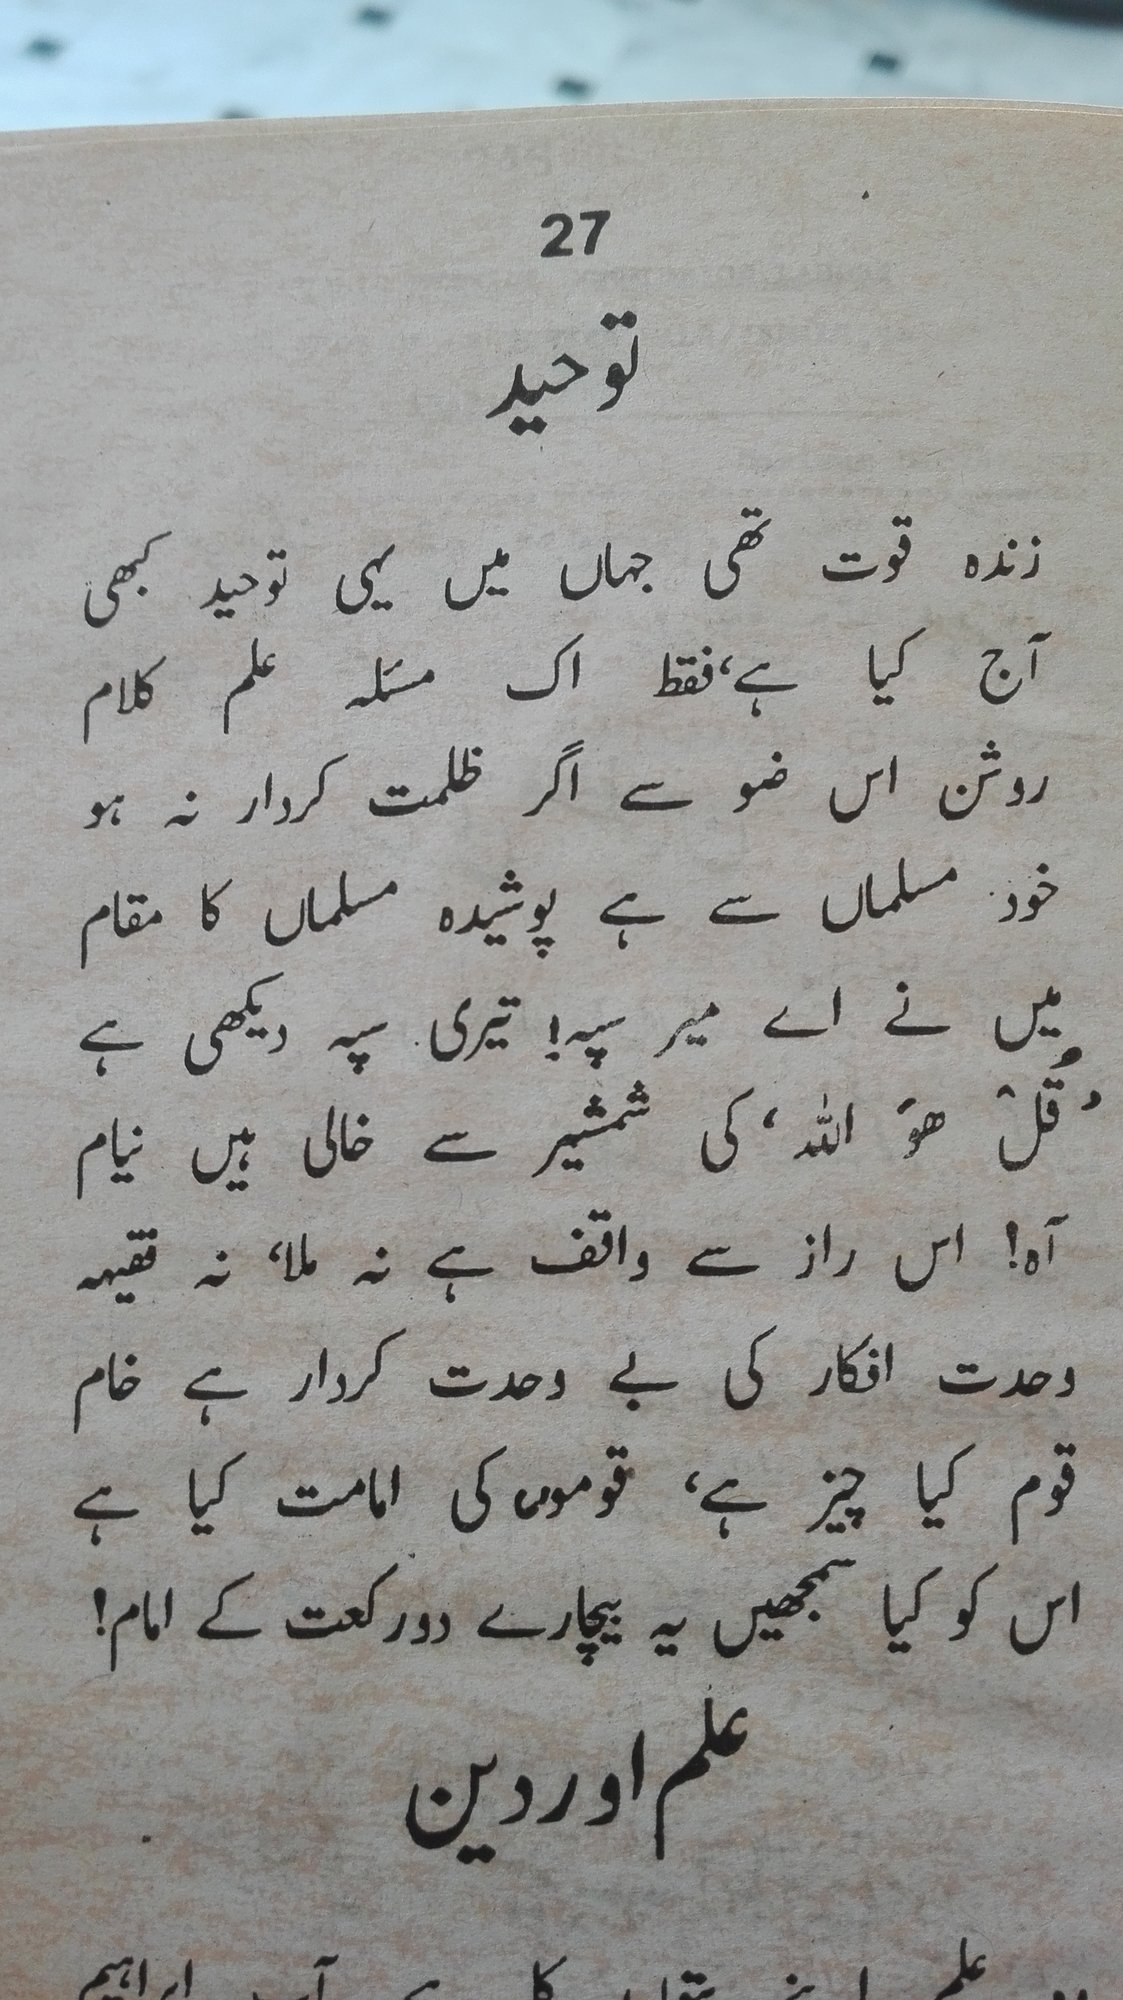 27
توحید
زندہ قوت تھی جہاں میں یہی توحید کبھی
آج کیا ہے، فقط اک مسئلہ علم کلام
روشن اس ضو سے اگر ظلمت کردار نہ ہو
خود مسلماں سے ہے پوشیدہ مسلماں کا مقام
میں نے اے میر سپہ! تیری سپہ دیکھی ہے
'قُلْ ھوَ اللہ' کی شمشیر سے خالی ہیں نیام
آہ! اس راز سے واقف ہے نہ ملا، نہ فقیہہ
وحدت افکار کی بے وحدت کردار ہے خام
قوم کیا چیز ہے، قوموں کی امامت کیا ہے
اس کو کیا سمجھیں یہ بیچارے دو رکعت کے امام!
علم اور دین
علم اپنے کا ہے آپ ابراہیم